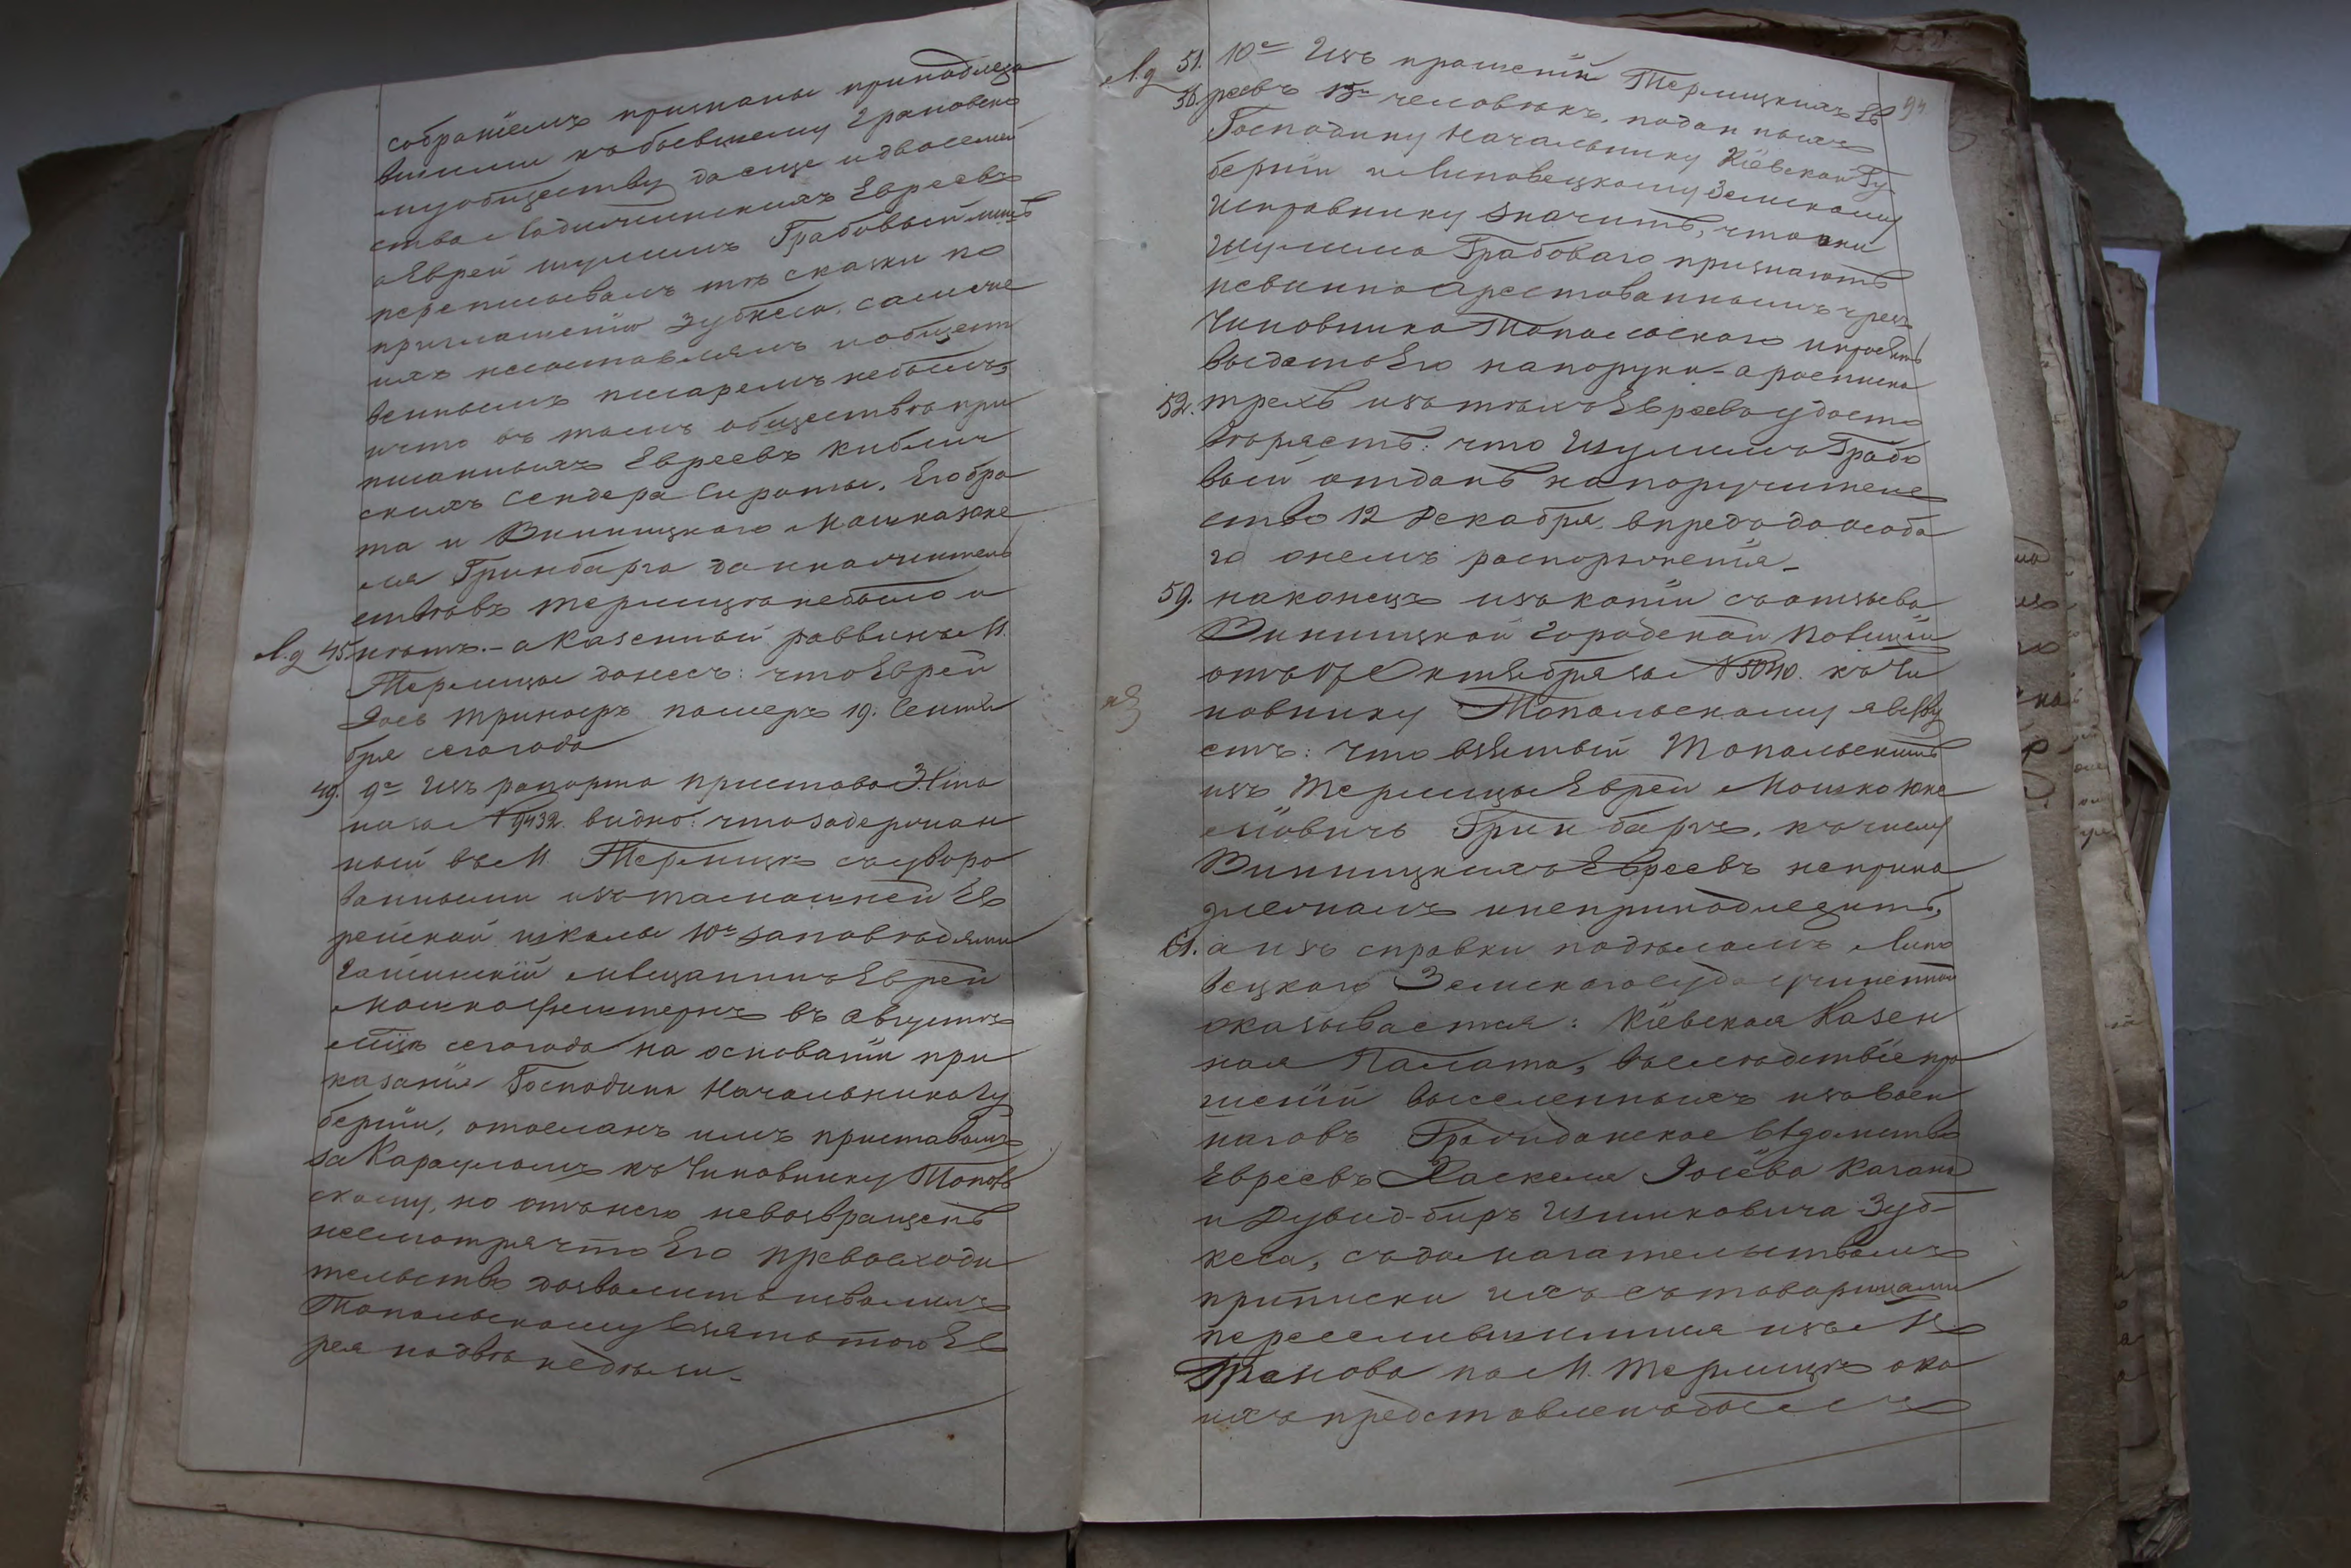 собранiемъ признаны принадлежа
вшими къ бывшему Грановско
му обществу до еще и двасемей
ства Ладиженскихъ Евреевъ
а Еврей Шулимъ Грабовый лишь
переписывалъ тѣ сказки по
приглашенiю Зубкеса, самъ же
ихъ несоставлялъ и общест
веннымъ писаремъ небылъ,
и что въ томъ обществѣ при
писанныхъ Евреевъ Киблич
скихъ Сендера Сироты, Его бра
та и Винницкаго Мошка Юке
ля Гринбарга до икаличитель
ствовъ Терлицѣ небыло и
Л.д 45. нѣтъ. - а Казенный раввинъ М.
Терлицы донесъ: что Еврей
Iось Тринчеръ померъ 19. Сентя
бря сего года
49. 9е Изъ рапорта пристава 3. Стана
за № 9432. видно: что задержан
ный въ М. Терлицѣ съ уворо
ванными изъ тамошней Ев
рейской школы 10ю заповѣдями
Гайсинскiй мѣщанинъ Еврей
Мошко Фельтернъ въ Августѣ
мцѣ сего года на основанiи при
казанiя Господина Начальника Гу
бернiи, отосланъ имъ приставомъ
за Карауломъ къ Чиновнику Топольс
скому, но отъ него невозвращенъ
несмотря что Его превосходи
тельство дозволилъ
Топольскому взять того Ев
рея на двѣ недѣли.
Л.д 51. 10е Изъ прошенiй Терлицкихъ Ев 94
56. реевъ 15ти человѣкъ, поданныхъ
Господину Начальнику Кiевской Гу
бернiи и Липовецкому Земскому
Исправнику значитъ, что они
Шулима Грабоваго признаютъ
невинно арестованнымъ чрезъ
Чиновника Топольскаго и просятъ
выдать Его на поруки - а росписка
52. трехъ изъ тѣхъ Евреевъ удосто
вѣряетъ: что Шулимъ Грабо
вый отданъ на поручитель
ство 12 Декабря впредь до особа
го о немъ распоряженiя.
59. наконецъ изъ копiи съ отзыва
Винницкой Городской Полицiи
отъ Октября за № 5040. къ Чи
новнику Топольскому явству
етъ: что взятый Топольскимъ
изъ Терлицы Еврей Мошко Юке
лiовичъ Гринбаргъ, къ числу
Винницкихъ Евреевъ неприна
длежалъ и непринадлежитъ,
61. а изъ справки подѣламъ Липо
вецкаго Земскаго Суда учиненной
оказывается: Кiевская Казен
ная Палата, въ слѣдствiе про
шенiй выселенныхъ изъ воен
наговъ Гражданское вѣдомство
Евреевъ Хаскеля Iосёва Кагана
и Дувид-бирь Ицковича Зуб-
кеса, съ домагательствомъ
приписки ихъ съ товарищами
переселившимися изъ М.
Гранова по М. Терлицѣ ока
ихъ представленъ былъ